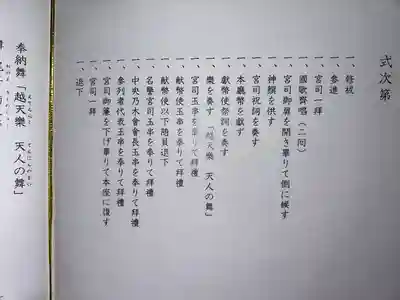 式次第
一、修祓
一、参進
一、宮司一拝
一、國歌齊唱(二回)
一、宮司御扉を開き畢りて側に候す
一、神饌を供す
一、宮司祝詞を奏す
一、本廳幣を献ず
一、献幣使祭詞を奏す
一、樂を奏す「越天樂 天人の舞」
一、宮司玉串を奉りて拜禮
一、献幣使玉串を奉りて拜禮
一、献幣使以下随員退下
一、名譽宮司玉串を奉りて拜禮
一、中央乃木會會長玉串を奉りて拜禮
一、参列者代表玉串を奉りて拜禮
一、宮司御簾を下げ畢りて本座に復す
一、宮司一拝
一、退下
奉納舞「越天樂 天人の舞」
えてんらく てんにんのまい